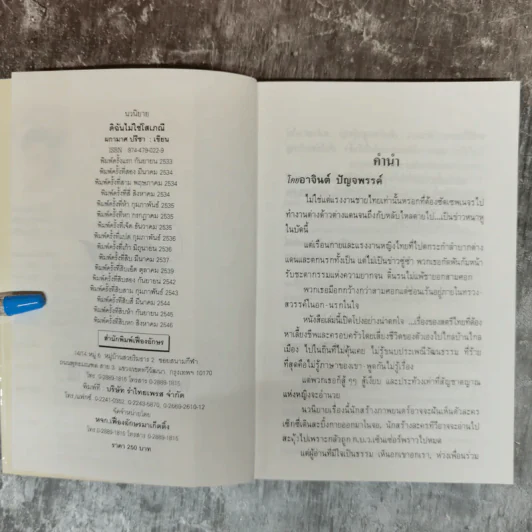 นวนิยาย
ดิฉันไม่ใช่โสเภณี
ปรีชา : เขียน
ISBN 974-479-022-9
พิมพ์ครั้งแรก กันยายน 2533
พิมพ์ครั้งที่สอง มีนาคม 2534
พิมพ์ครั้งที่สาม พฤษภาคม 2534
พิมพ์ครั้งที่สี่ สิงหาคม 2534
พิมพ์ครั้งที่ห้า กุมภาพันธ์ 2535
พิมพ์ครั้งที่หก กรกฎาคม 2535
พิมพ์ครั้งที่เจ็ด ธันวาคม 2535
พิมพ์ครั้งที่แปด กุมภาพันธ์ 2536
พิมพ์ครั้งที่เก้า มิถุนายน 2536
พิมพ์ครั้งที่สิบ มีนาคม 2537
พิมพ์ครั้งที่สิบเอ็ด ตุลาคม 2539
พิมพ์ครั้งที่สิบสอง กันยายน 2542
พิมพ์ครั้งที่สิบสาม กุมภาพันธ์ 2543
พิมพ์ครั้งที่สิบสี่ มีนาคม 2544
พิมพ์ครั้งที่สิบห้า กันยายน 2545
พิมพ์ครั้งที่สิบหก สิงหาคม 2546
สำนักพิมพ์เฟื่องอักษร
หมู่บ้านสวนริมธาร 2 ซอยสนามกีฬา
ถนนพุทธมณฑล สาย 2 แขวง เขตทวีวัฒนา กรุงเทพฯ 10170
โทร 0-2889-1815 โทรสาร 0-2889-1815
พิมพ์ที่ บริษัท รำไทยเพรส จำกัด
จัดจำหน่ายโดย
หจก.เฟื่องอักษรมาเก็ตติ้ง
โทร 0-2889-1815 โทรสาร 0-2889-1815
ราคา 250 บาท
คำนำ
โดยอาจินต์ ปัญจพรรค์
ไม่ใช่แต่แรงงานชายไทยเท่านั้นหรอกที่ต้องซัดเซพเนจรไป
ทำงานต่างด้าวต่างแดนจนถึงกับหลับไหลตายไป...เป็นข่าวหนาหู
ในบัดนี้
แต่เรือนกายและแรงงานหญิงไทยที่ไปตกระกำลำบากต่าง
แดนและตกนรกทั้งเป็น แต่ไม่เป็นข่าวซู่ซ่า พวกเธอกัดฟันก้มหน้า
รับชะตากรรมแห่งความยากจน ดิ้นรนไม่แพ้ชายอกสามศอก
พวกเธอมีอกกว้างกว่าสามศอกแต่ซ่อนเร้นอยู่ภายในทรวง-
สวรรค์ในอก นรกในใจ
หนังสือเล่มนี้เปิดโปงอย่างน่าตกใจ ...เรื่องของสตรีไทยที่ต้อง
หาเลี้ยงชีพและครอบครัวโดยเสี่ยงชีวิตของตัวเองไปไกลบ้านไกล
เมือง ไปในถิ่นที่ไม่คุ้นเคย ไม่รู้ขนบประเพณีวัฒนธรรม ที่ร้าย
ที่สุดคือไม่รู้ภาษาของเขา พูดกันไม่รู้เรื่อง
แต่พวกเธอก็สู้ๆ สู้เงียบ และประท้วงเท่าที่สัญชาตญาณ
แห่งหญิงจะอำนวย
นวนิยายเรื่องนี้นักสร้างภาพยนตร์อาจจะฝันเห็นตัวละคร
นักสร้างละครทีวีอาจจะอ่านไป
สะดุ้งไปเพราะกลัวถูก ก.บ.ว.เซ็นเซ่อร์พราวไปหมด
แต่ผู้อ่านที่มีใจเป็นธรรม เห็นอกเขาอกเรา, ห่วงเพื่อนร่วม